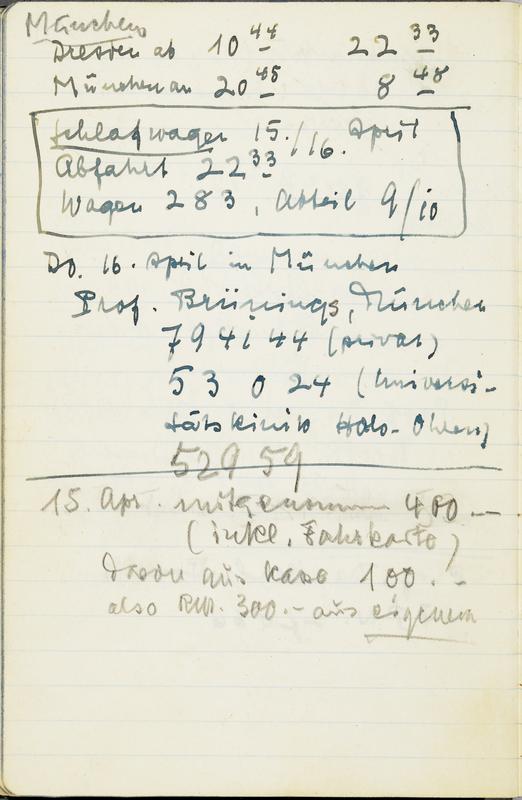 München
Dresden ab 10 44 22 33
München an 20 45 8 48
Schlafwagen 15./16. April
Abfahrt 22 33
Wagen 283, Abteil 9/10
Do. 16. April in München
Prof. Brünings, München
794144 (privat)
53 0 24 (Universi-
tätsklinik Hals-Ohren)
529 59
15. Apr. mitgenommen 400.—
(inkl. Fahrkarte)
davon aus Kasse 100.-
also RM. 300.- aus eigenem